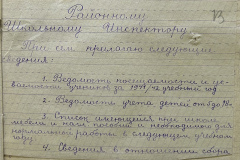 Районному
Школьному Инспектору
При сем прилагаю следующие
сведения:
1. Ведомости посещаемости и ус-
певаемости учеников за учебный год.
2. Ведомость учета детей от до
3. Список имеющейся еще школ.
мебели и пособий и необходимой для
нормальной работы в следующем учебном
году.
4. Сведения в отношении сбора